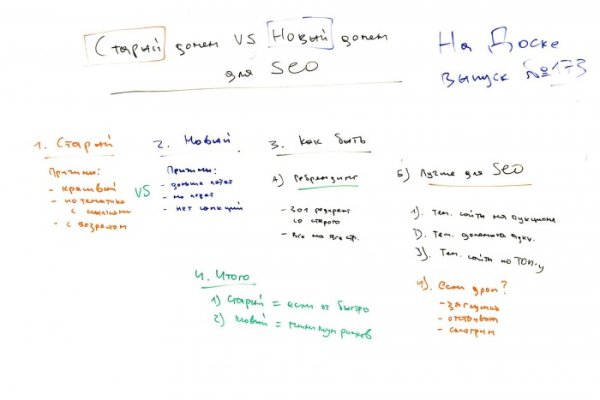 Старый домен VS Новый домен
для SEO
На Доске
выпуск №173
1. Старый
Причины:
- красивый
- по тематике
с ссылками
- с возрастом
VS
2. Новый
Причины:
- дольше
- не
- нет санкций
3. Как быть
А) Ребрендинг
- 301 редирект
со старого
- все на все стр.
Б) Лучше для SEO
1). Тем. сайты на аукционе
2). Тем. домены аукц.
3). Тем. сайты по ТОП-у
4). если дроп?
- заглушка
- отстоялся
- смотрим
4. Итого
1) Старый = если ок быстро
2) Новый = минимум рисков